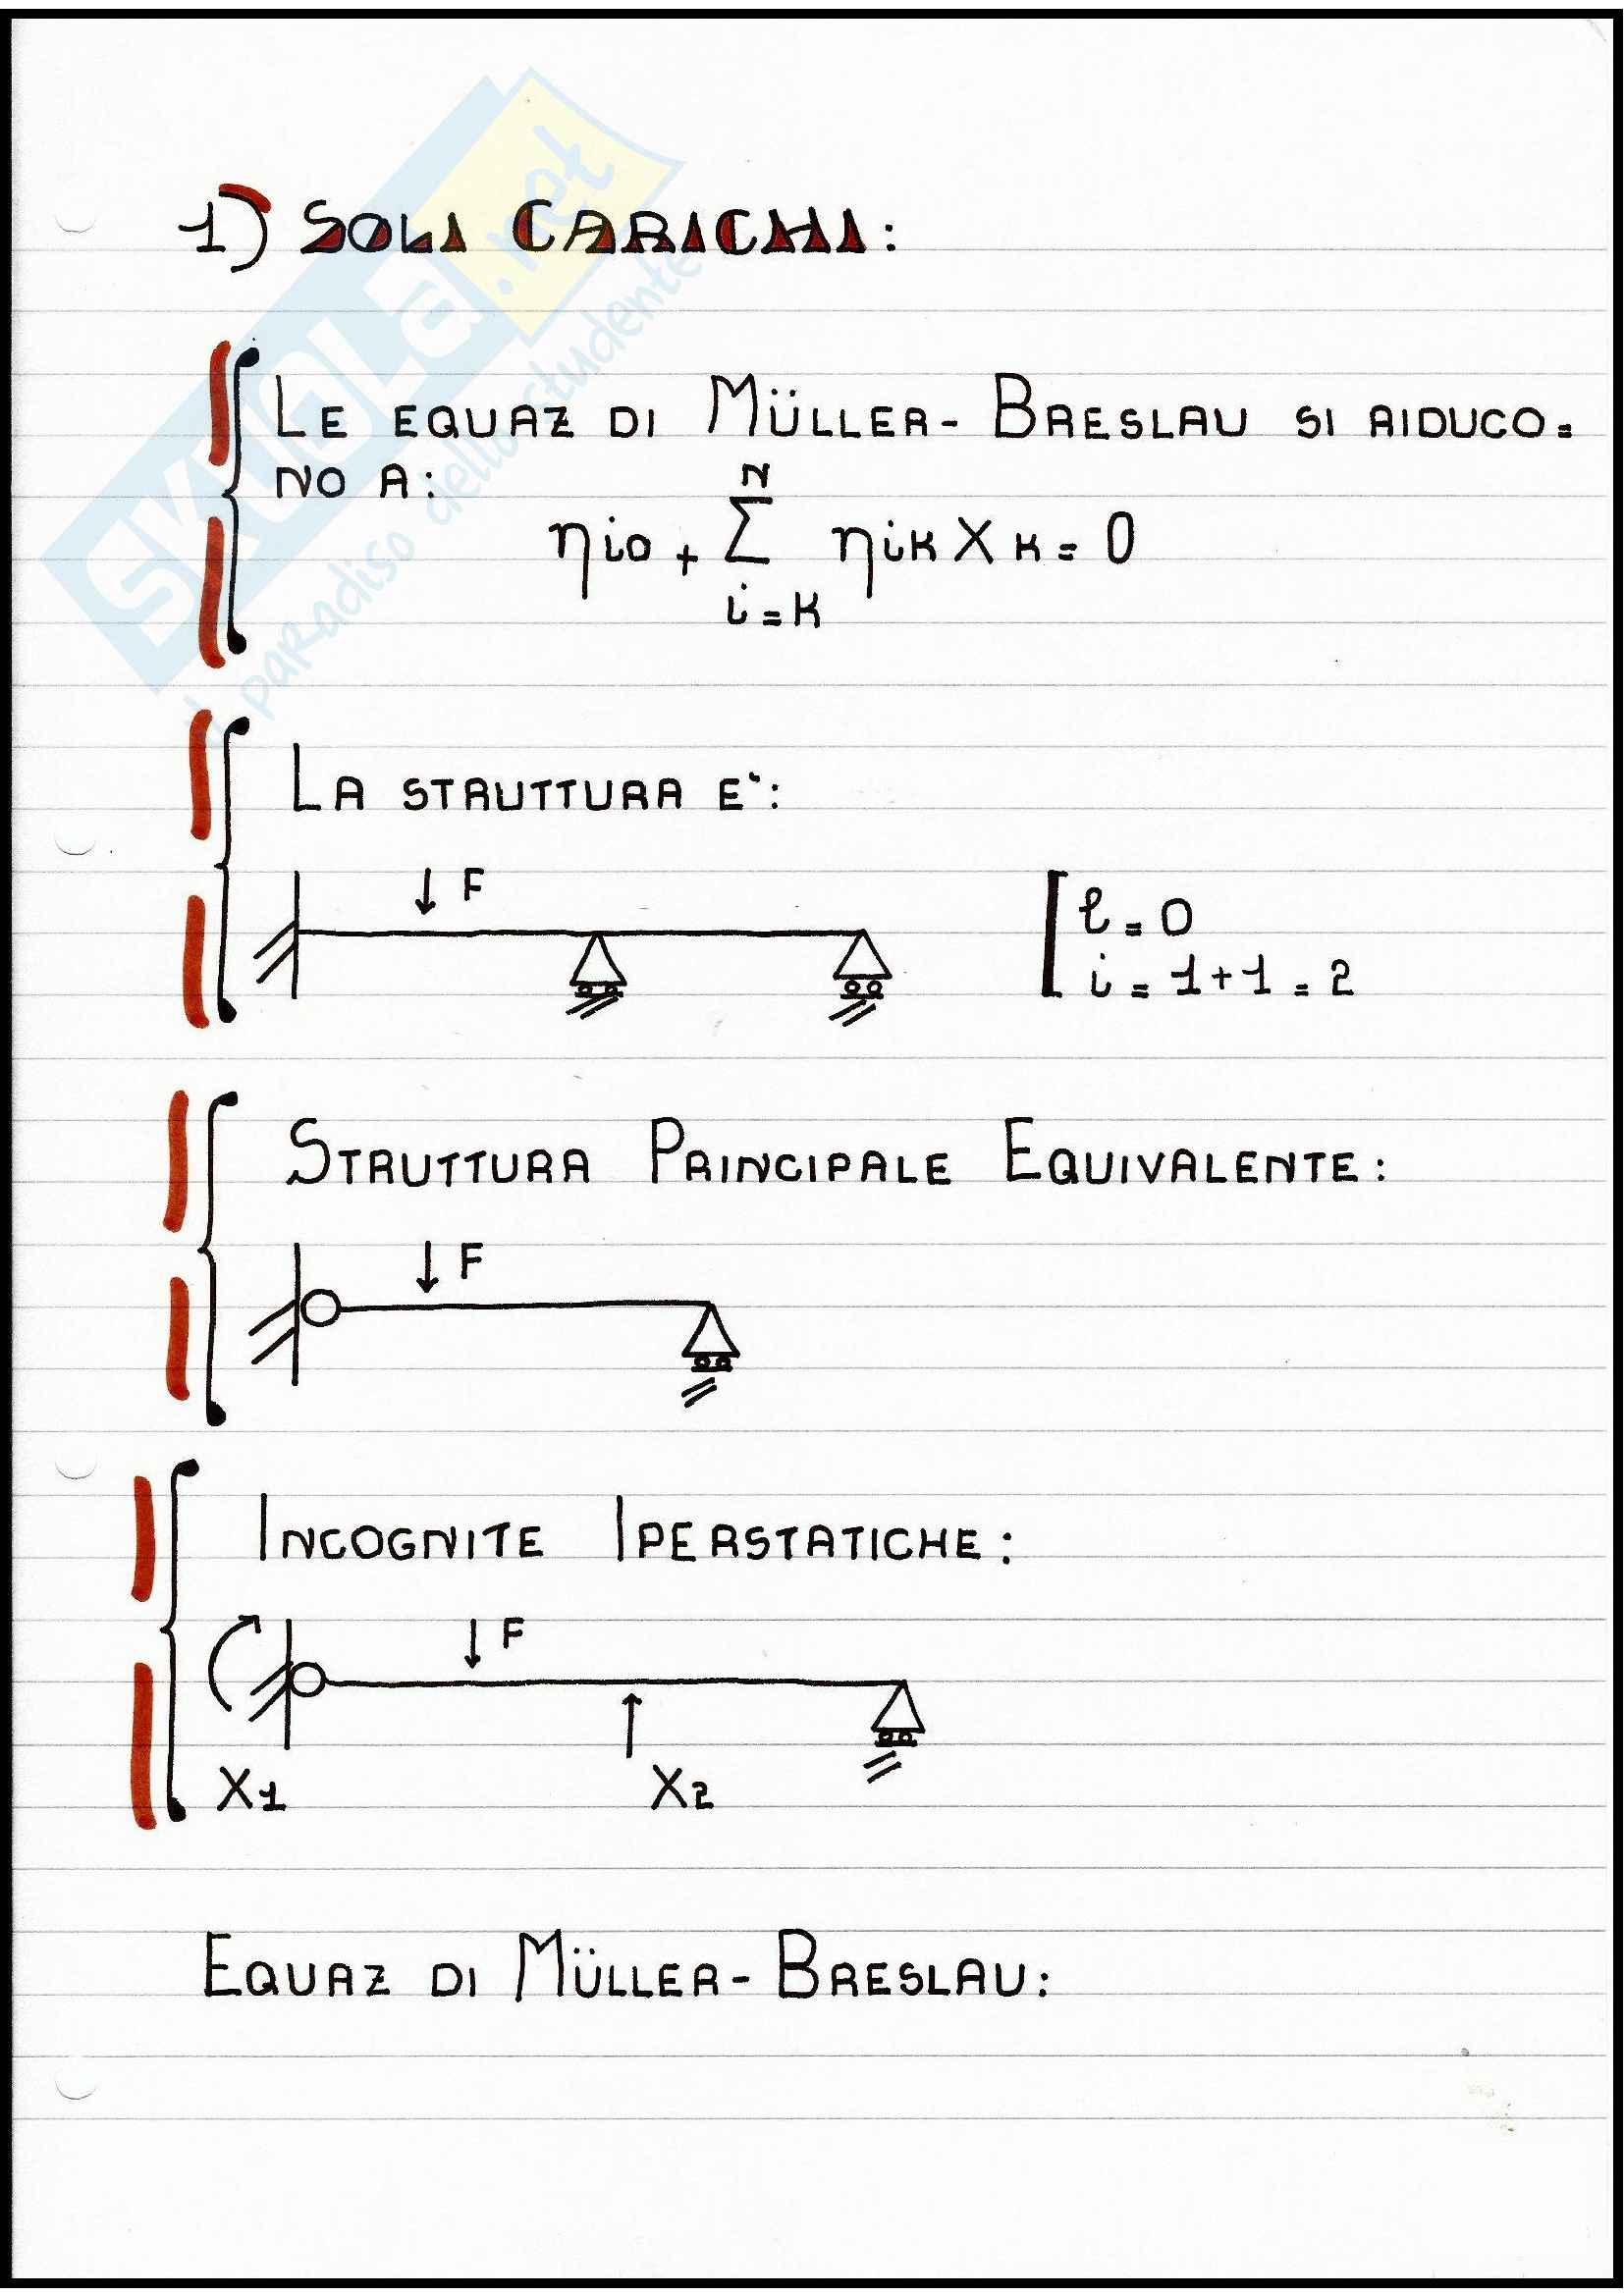 1) SOLI CARICHI:
LE EQUAZ DI MÜLLER-BRESLAU SI RIDUCO=
NO A:
N
ηio + Σ ηik Xk = 0
i=k
LA STRUTTURA E':
F
l = 0
i = 1+1 = 2
STRUTTURA PRINCIPALE EQUIVALENTE:
F
INCOGNITE IPERSTATICHE:
F
X1 X2
EQUAZ DI MÜLLER-BRESLAU:
SKUOLA.net
il paradiso dello studente